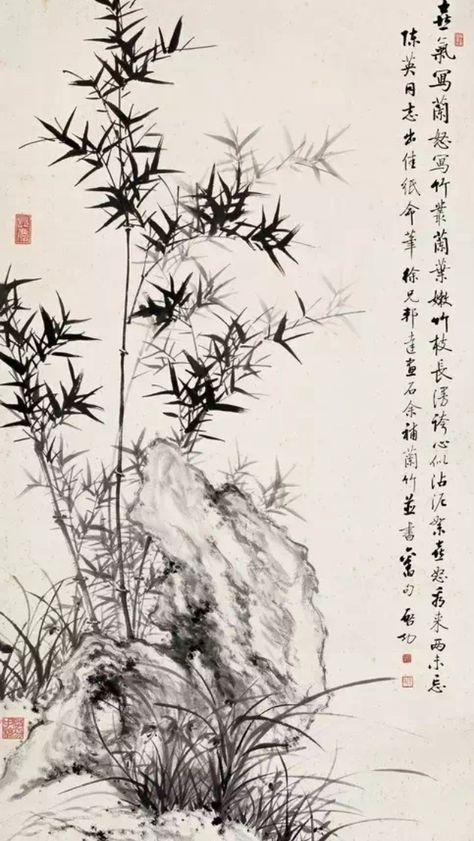 喜氣寫蘭怒寫竹叢蘭葉嫩竹枝長漫誇心似沾泥絮喜怒看來兩未忘
陳英同志出佳紙命筆徐兄邦達畫石余補蘭竹並書舊句啟功